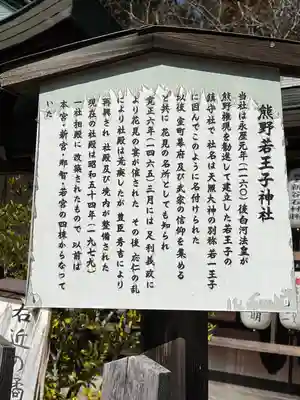 熊野若王子神社
当社は永暦元年(一一六〇)後白河法皇が
熊野権現を勧請して建立した若王子の
鎮守社で 社名は天照大神の別称若一王子
に因んでこのように名付けられた
以後 室町幕府及び武家の信仰を集める
と共に 花見の名所としても知られ
寛正六年(一四六五)三月には 足利義政に
より花見の宴が催された その後 応仁の乱
により社殿は荒廃したが 豊臣秀吉により
再興され 社殿及び境内が整備された
現在の社殿は昭和五十四年(一九七九)
一社相殿に改築されたもので 以前は
本宮・新宮・那智・若宮の四棟からなって
いた
右近の橘